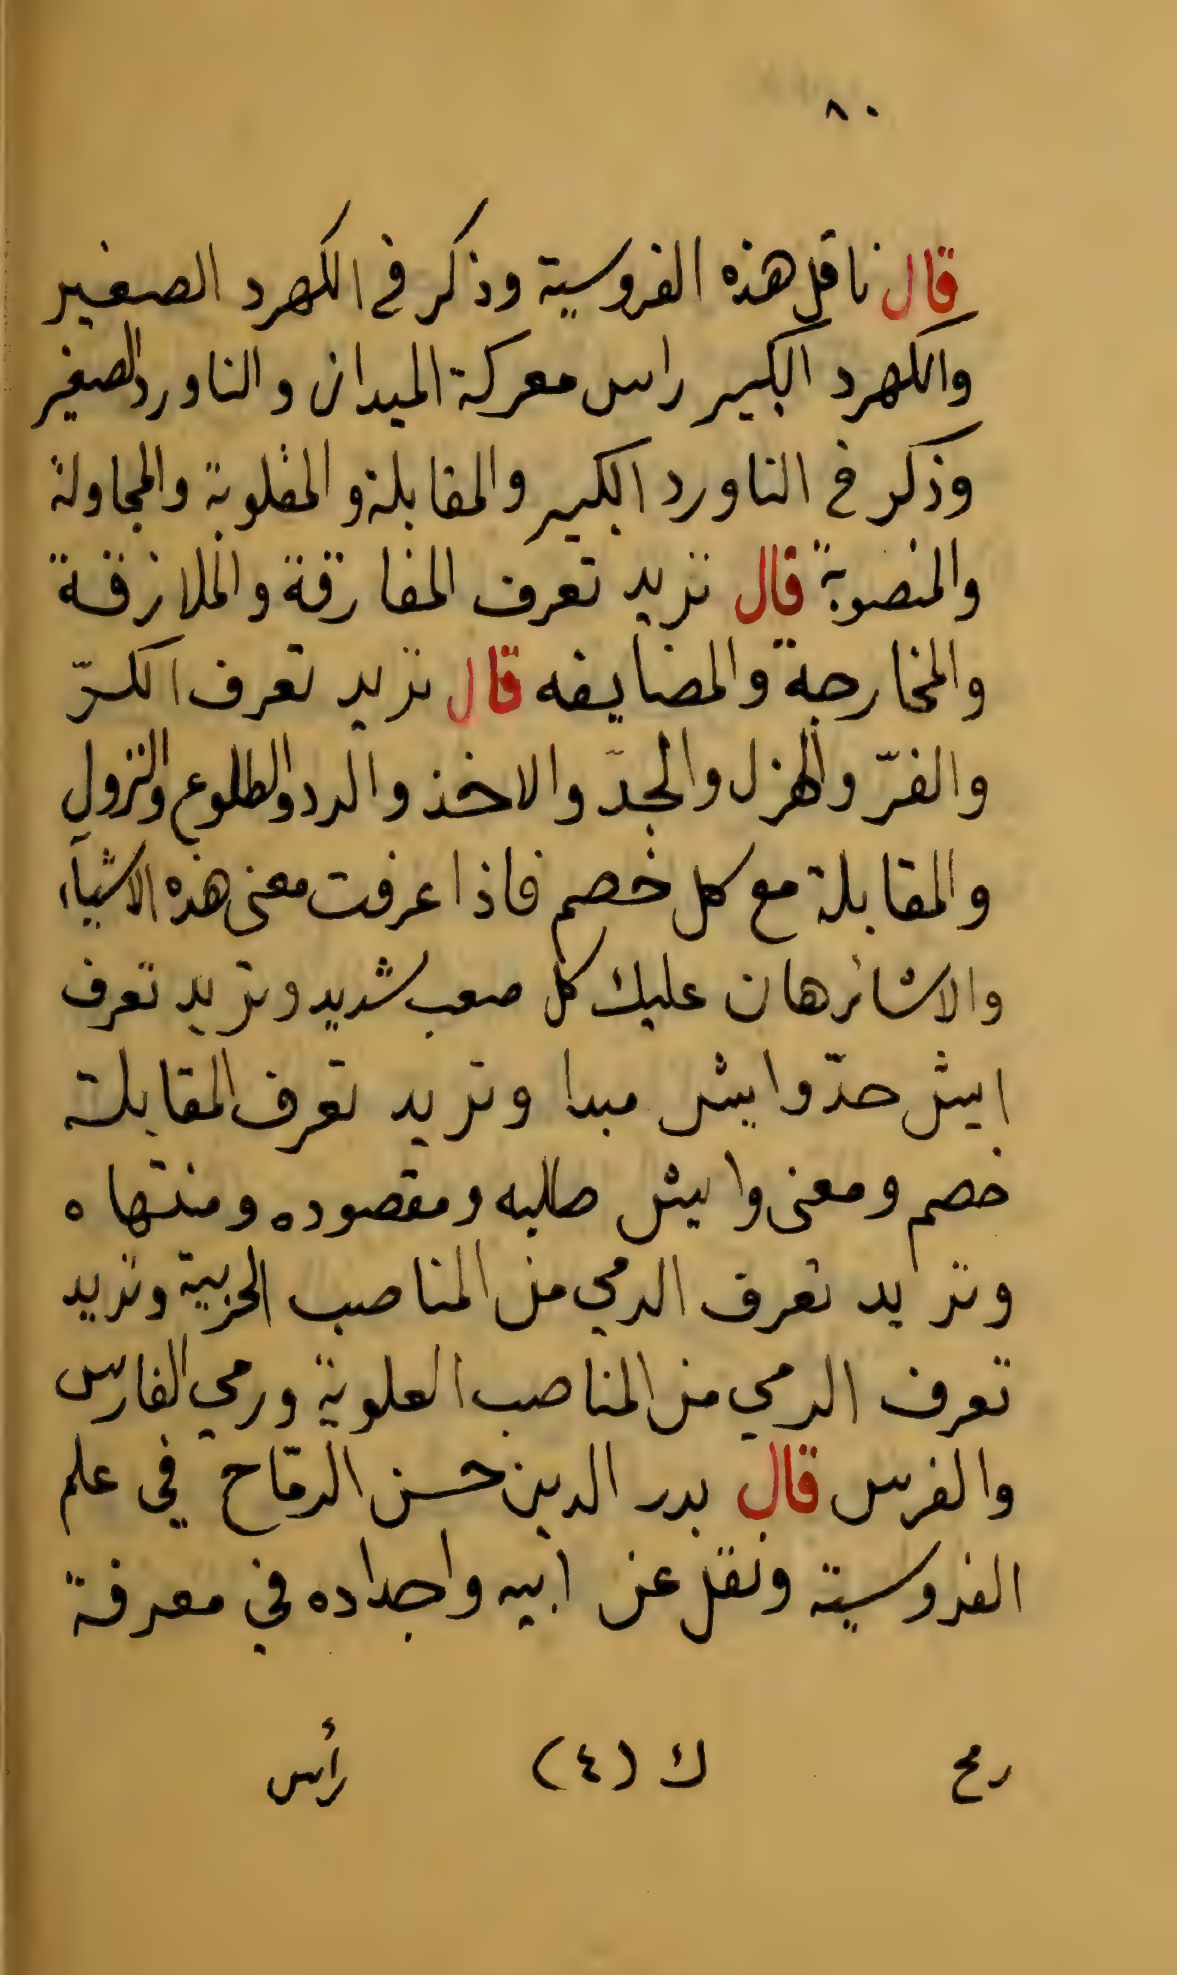 ٨٠
قال ناقل هذه الفروسية وذكر في الكهرد الصغير
والكهرد الكبير راس معركة الميدان والناورد الصغير
وذكر في الناورد الكبير والمقابلة والمقلوبة والمجاولة
والمنصوبة قال تريد تعرف المفارقة والملازقة
والمخارجة والمضايفه قال تريد تعرف الكرّ
والفرّ والهزل والجدّ والاخذ والرد والطلوع والنزول
والمقابلة مع كل خصم فاذا عرفت معنى هذه الاشيآء
والاشائر هان عليك كل صعب شديد وتريد تعرف
ايش حدّ وايش مبدا وتريد تعرف المقابلة
خصم ومعنى وايش طلبه ومقصوده ومنتهاه
وتريد تعرف الرمي من المناصب الحربية وتريد
تعرف الرمي من المناصب العلوية ورمي الفارس
والفرس قال بدر الدين حسن الرمّاح في علم
الفروسية ونقل عن ابيه واجداده في معرفة
رمح ك (٤) رأس